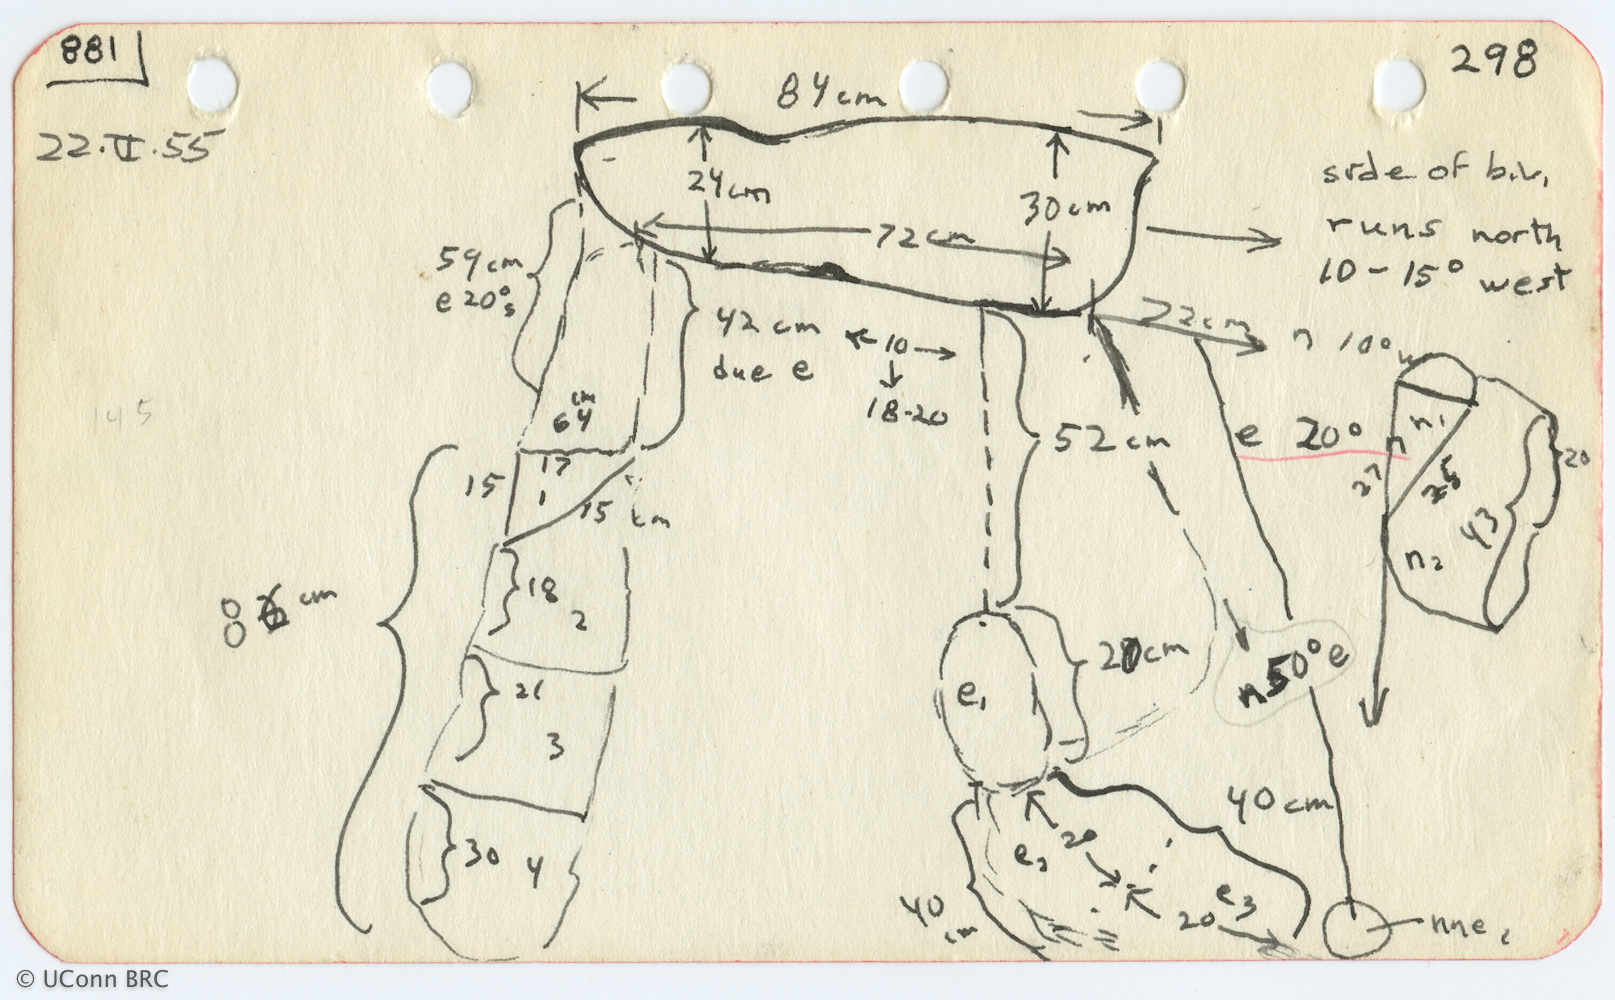 881
298
22.VI.55
84 cm
24 cm
30 cm
72 cm
side of b.v.
runs north
10-15° west
59 cm
e 20° s
42 cm
due e
10
18-20
22 cm
n 10° w
cm
64
17
1
15
15 cm
145
52 cm
e 20° n
n1
27
43
20
n2
18
2
8 cm
21
3
30
4
e1
20 cm
n 50° e
40 cm
e2
20
40 cm
e3
20
nne
© UConn BRC